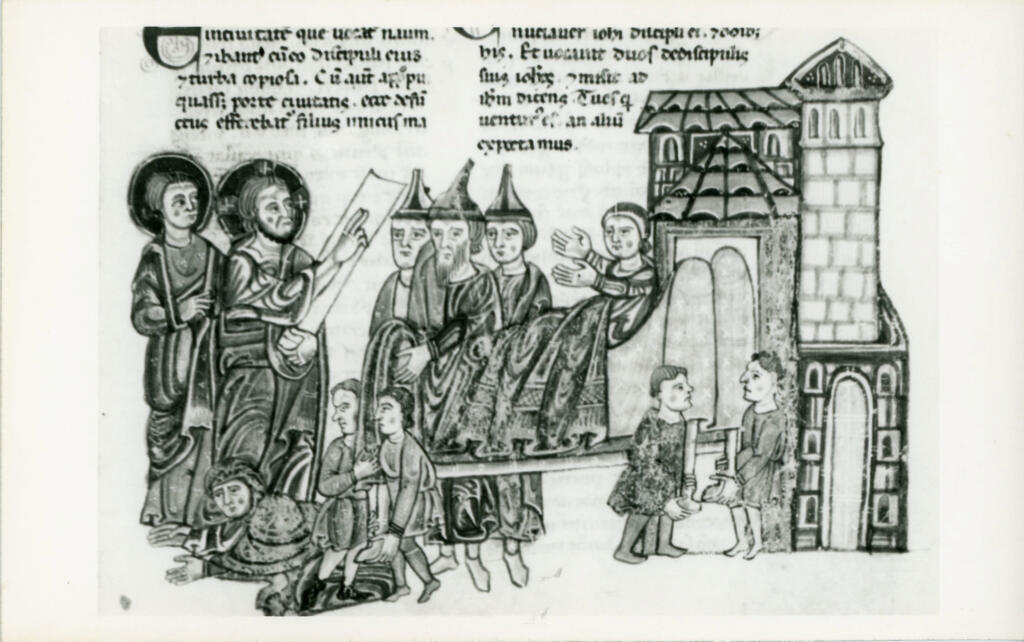 inciuitatē que uocat̄ naim.
⁊ibant̄ cū eo discipuli eius
⁊turba copiosa. Cū aūt app̄pin
quass& porte ciuitatis. ecce defū
ctus efferebat̄ filius unicus ma
discipuli ei.
his. Et uocauit duos dediscipulis
suis ioh̄s. ⁊misit ad
ih̄m dicens. Tu es q
uentur᾽ es. an aliū
expectamus.